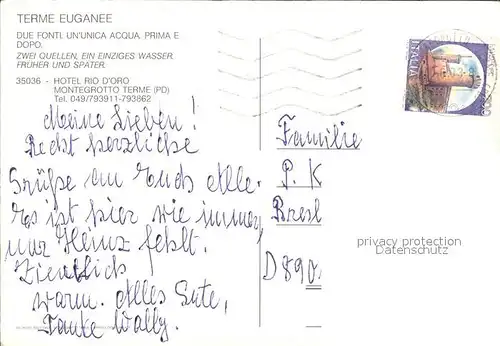 TERME EUGANEE
DUE FONTI. UN'UNICA ACQUA. PRIMA E
DOPO.
ZWEI QUELLEN, EIN EINZIGES WASSER.
FRÜHER UND SPÄTER.
35036 - HOTEL RIO D'ORO
MONTEGROTTO TERME (PD)
Tel. 049/793911-793862
Meine Lieben!
Recht herzliche
Grüße an Euch Alle.
Es ist hier wie immer,
nur Heinz fehlt.
Ziemlich
warm. Alles Gute,
Tante Wally.
ITALIA
Familie
P. K
Bresl
D 890
privacy protection
Datenschutz